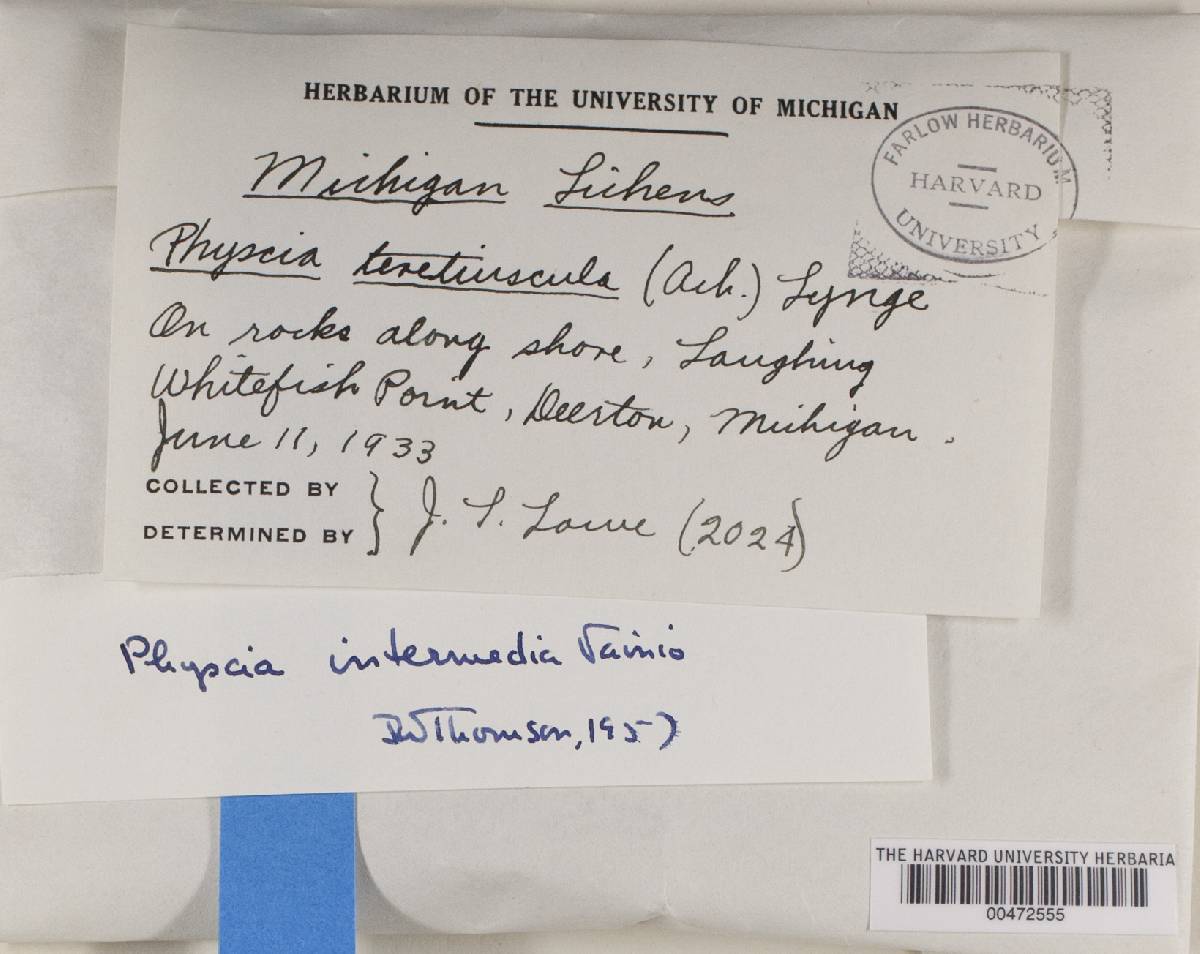 HERBARIUM OF THE UNIVERSITY OF MICHIGAN
FARLOW HERBARIUM
HARVARD
UNIVERSITY
Michigan Lichens
Physcia teretiuscula (Ach.) Lynge
On rocks along shore, Laughing
Whitefish Point, Deerton, Michigan.
June 11, 1933
COLLECTED BY
DETERMINED BY } J. L. Lowe (2024)
Physcia intermedia Vainio
JWThomson, 1957
THE HARVARD UNIVERSITY HERBARIA
00472555